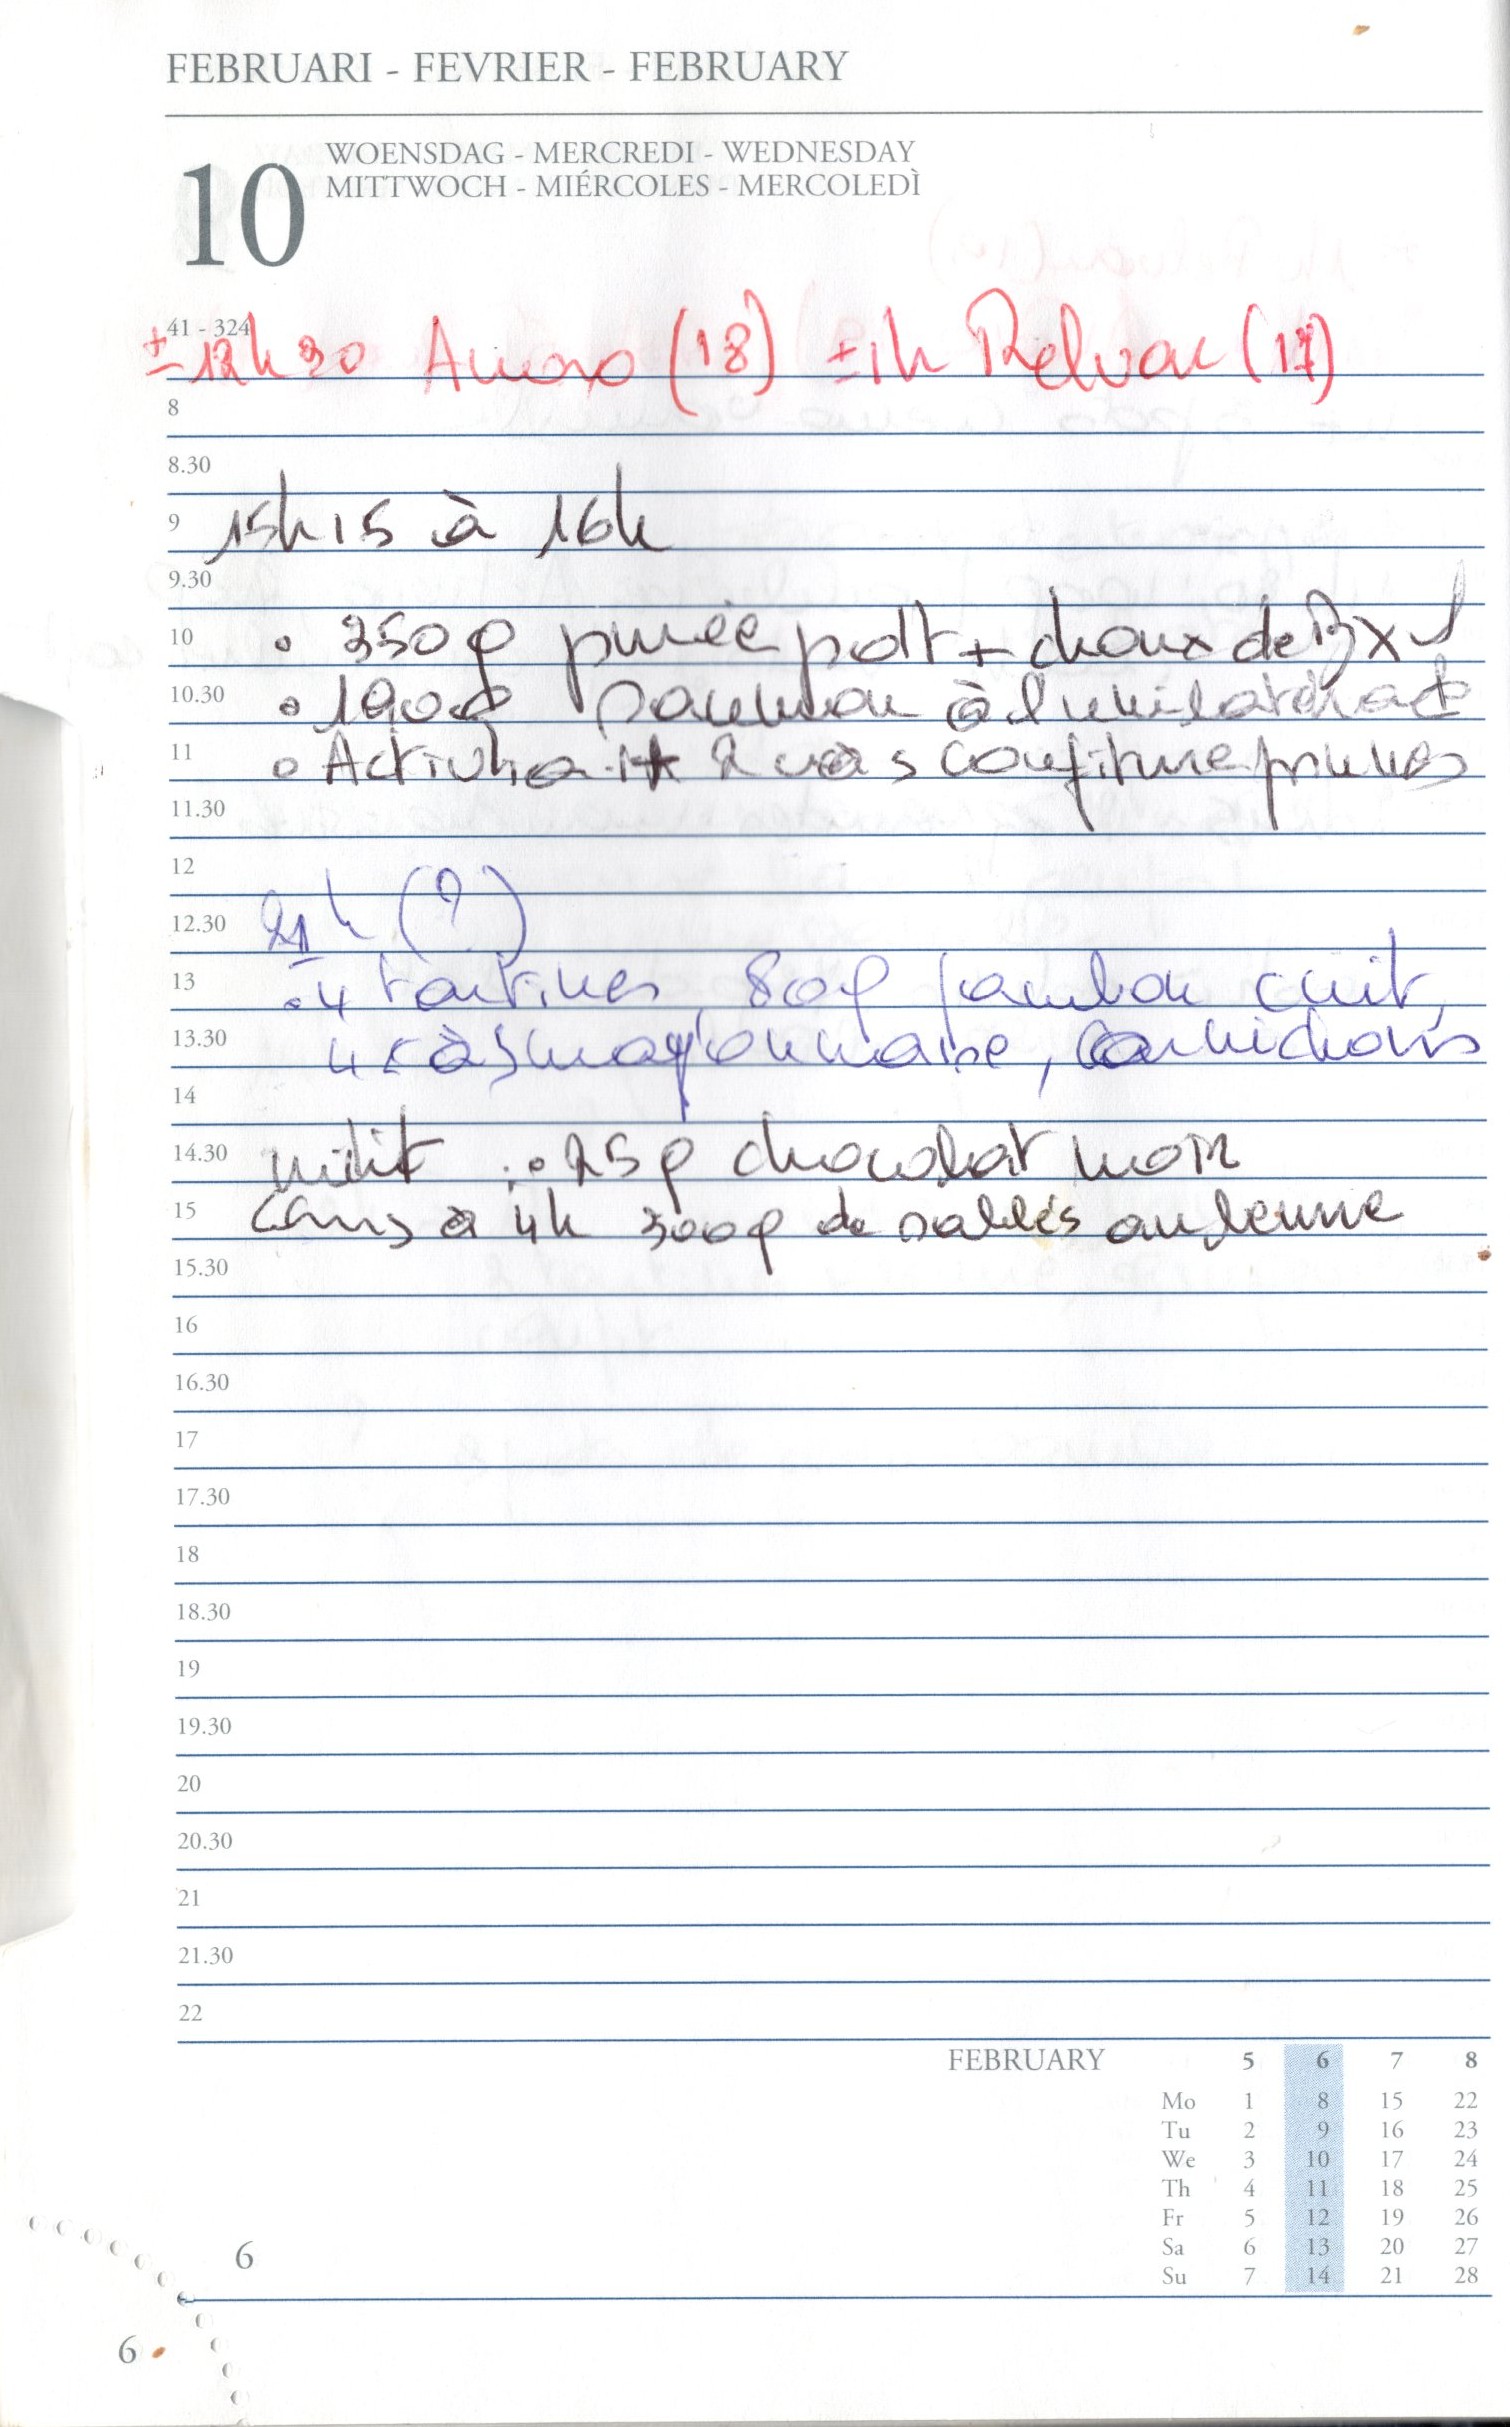 FEBRUARI - FEVRIER - FEBRUARY
10
WOENSDAG - MERCREDI - WEDNESDAY
MITTWOCH - MIÉRCOLES - MERCOLEDÌ
41 - 324
± 12h30 (18) ± 1h Relvar (17)
8
8.30
9 15h15 à 16h
9.30
10 • 350g purée pdt + choux de Bx
10.30 • 190g saumon à l'unilatéral
11 • Activia + 2 càs confiture prunes
11.30
12
12.30 21h (?)
13 • 4 tartines 80g jambon cuit,
13.30 4 càs mayonnaise, cornichons
14
14.30 minit : • 25g chocolat noir
15 à 4h 300g de sablés au beurre
15.30
16
16.30
17
17.30
18
18.30
19
19.30
20
20.30
21
21.30
22
FEBRUARY 5 6 7 8
Mo 1 8 15 22
Tu 2 9 16 23
We 3 10 17 24
Th 4 11 18 25
Fr 5 12 19 26
Sa 6 13 20 27
Su 7 14 21 28
6
6